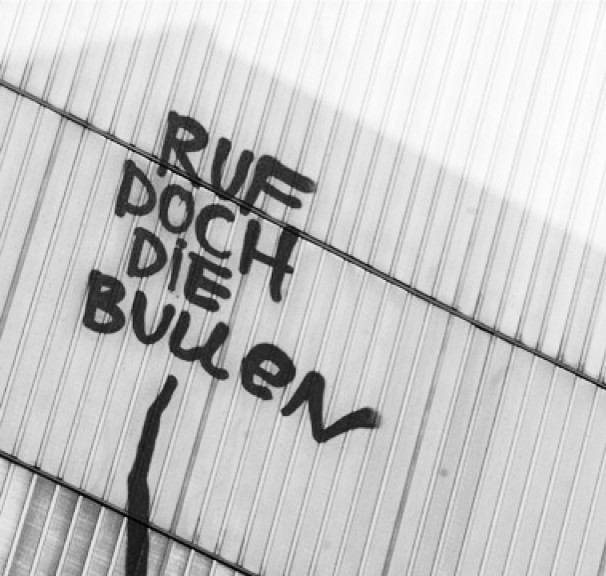 RUF
DOCH
DiE
BULLeN